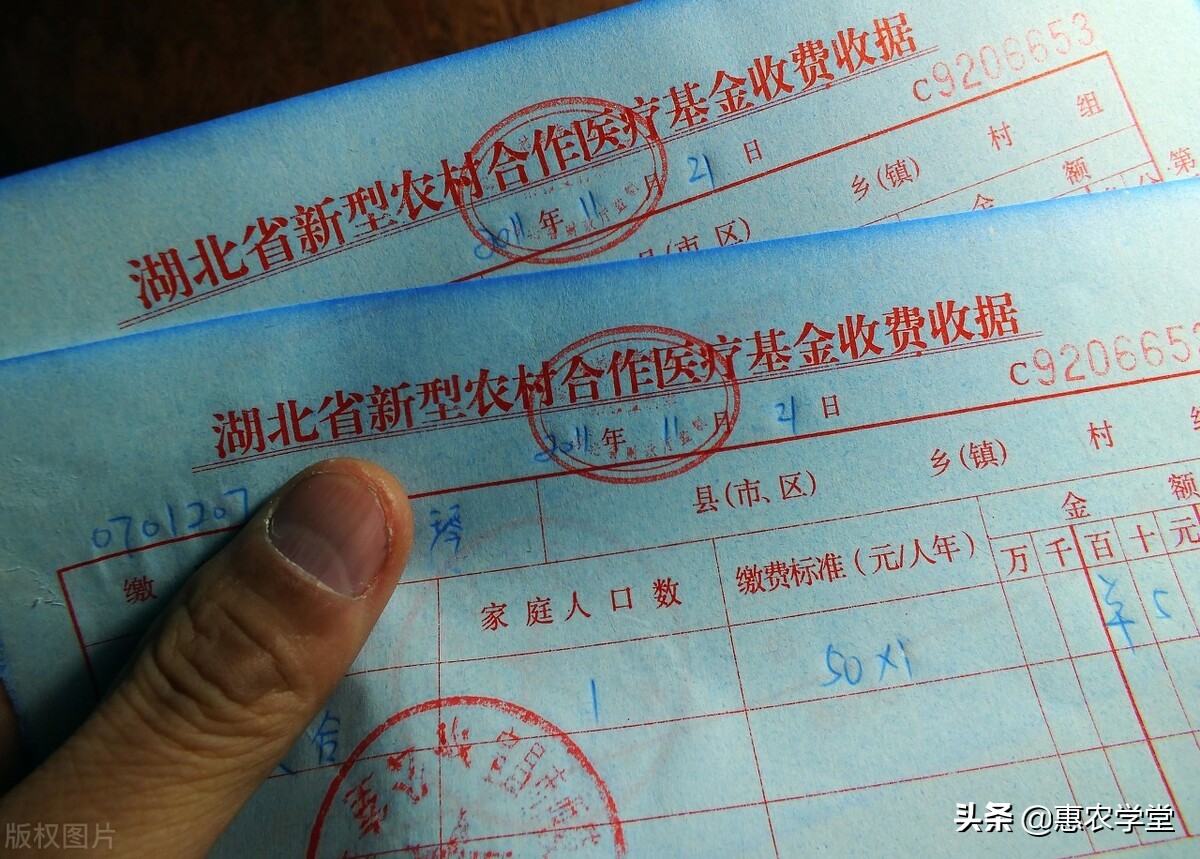 湖北省新型农村合作医疗基金收费收据
c9206653
2011 年 11 月 21 日
县(市、区) 乡(镇) 村 组
金 额
第
湖北省新型农村合作医疗基金收费收据
c920665
2011 年 11 月 21 日
0701207 琴 县(市、区) 乡(镇) 村
缴 家庭人口数 缴费标准(元/人年) 金 额
万 千 百 十 元
合 1 50×1 羊 5
版权图片
头条 @惠农学堂